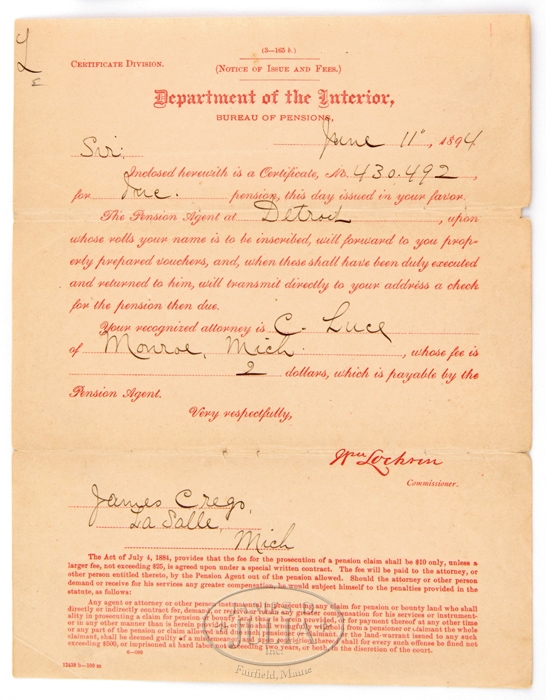 L
E
(3—165 b.)
CERTIFICATE DIVISION.
(NOTICE OF ISSUE AND FEES.)
Department of the Interior,
BUREAU OF PENSIONS,
June 11", 1894
Sir:
Inclosed herewith is a Certificate, No. 430.492,
for Inc. pension, this day issued in your favor.
The Pension Agent at Detroit, upon
whose rolls your name is to be inscribed, will forward to you prop-
erly prepared vouchers, and, when these shall have been duly executed
and returned to him, will transmit directly to your address a check
for the pension then due.
Your recognized attorney is C. Luce
of Monroe, Mich., whose fee is
2 dollars, which is payable by the
Pension Agent.
Very respectfully,
Wm Lochren
Commissioner.
James Cregs,
La Salle,
Mich
The Act of July 4, 1884, provides that the fee for the prosecution of a pension claim shall be $10 only, unless a
larger fee, not exceeding $25, is agreed upon under a special written contract. The fee will be paid to the attorney, or
other person entitled thereto, by the Pension Agent out of the pension allowed. Should the attorney or other person
demand or receive for his services any greater compensation, he would subject himself to the penalties provided in the
statute, as follows:
Any agent or attorney or other person instrumental in prosecuting any claim for pension or bounty land who shall
directly or indirectly contract for, demand, or receive or retain any greater compensation for his services or instrument-
ality in prosecuting a claim for pension or bounty land than is herein provided, or for payment thereof at any other time
or in any other manner than is herein provided, or who shall wrongfully withhold from a pensioner or claimant the whole
or any part of the pension or claim allowed and due such pensioner or claimant, or the land-warrant issued to any such
claimant, shall be deemed guilty of a misdemeanor, and upon conviction thereof shall for every such offense be fined not
exceeding $500, or imprisoned at hard labor not exceeding two years, or both, in the discretion of the court.
6—108
JULIA
Inc.
Fairfield, Maine